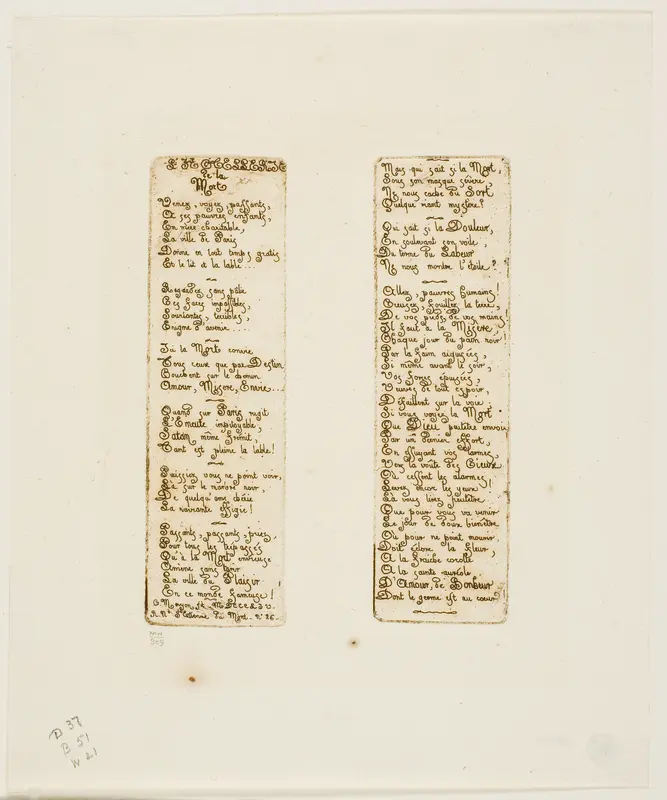 L'HOTELLERIE
de la
Mort
Venez, voyez, passants,
A ses pauvres enfants,
En mère charitable,
La ville de Paris
Donne en tout temps gratis
Et le lit et la table...
Regardez sans pâlir
Ces faces impassibles,
Souriantes, terribles,
Enigme d'avenir...
Ici la Mort convie
Tous ceux que par Destin
Couchent sur le chemin
Amour, Misère, Envie...
Quand sur Paris rugit
L'Emeute impitoyable,
Satan même frémit,
Tant est pleine la table!
Puissiez vous ne point voir,
Là sur le marbre noir,
De quelqu'ame chérie
La navrante effigie!
Passants, passants, priez,
Pour tous les trépassés
Qu'à la Mort envieuse
Amène sans tarir
La ville du Plaisir
En ce monde fameuse!
C. Meryon
N° 26
Mais qui sait si la Mort,
Sous son masque sévère,
Ne nous cache du Sort
Quelque riant mystère?
Qui sait si la Douleur,
En soulevant son voile,
Du terme du Labeur
Ne nous montre l'étoile?
Allez, pauvres humains!
Creusez, fouillez la terre,
De vos pieds, de vos mains
Il faut à la Misère,
Chaque jour du pain noir!
Par la faim aiguisées,
Si même avant le soir,
Vos forces épuisées,
Veuves de tout espoir,
Défaillent sur la voie
Si vous voyez la Mort
Que Dieu peutêtre envoie
Par un dernier effort,
En essuyant vos larmes,
Vers la voûte des Cieux
Où cessent les alarmes
Levez encor les yeux!
Là vous lirez peutêtre
Que pour vous va venir
Le jour de doux bienêtre
Où pour ne point mourir
Doit éclore la fleur,
A la fraiche corolle
A la sainte auréole
D'Amour, de Bonheur
Dont le germe est au coeur
D 37
B 51
W 21